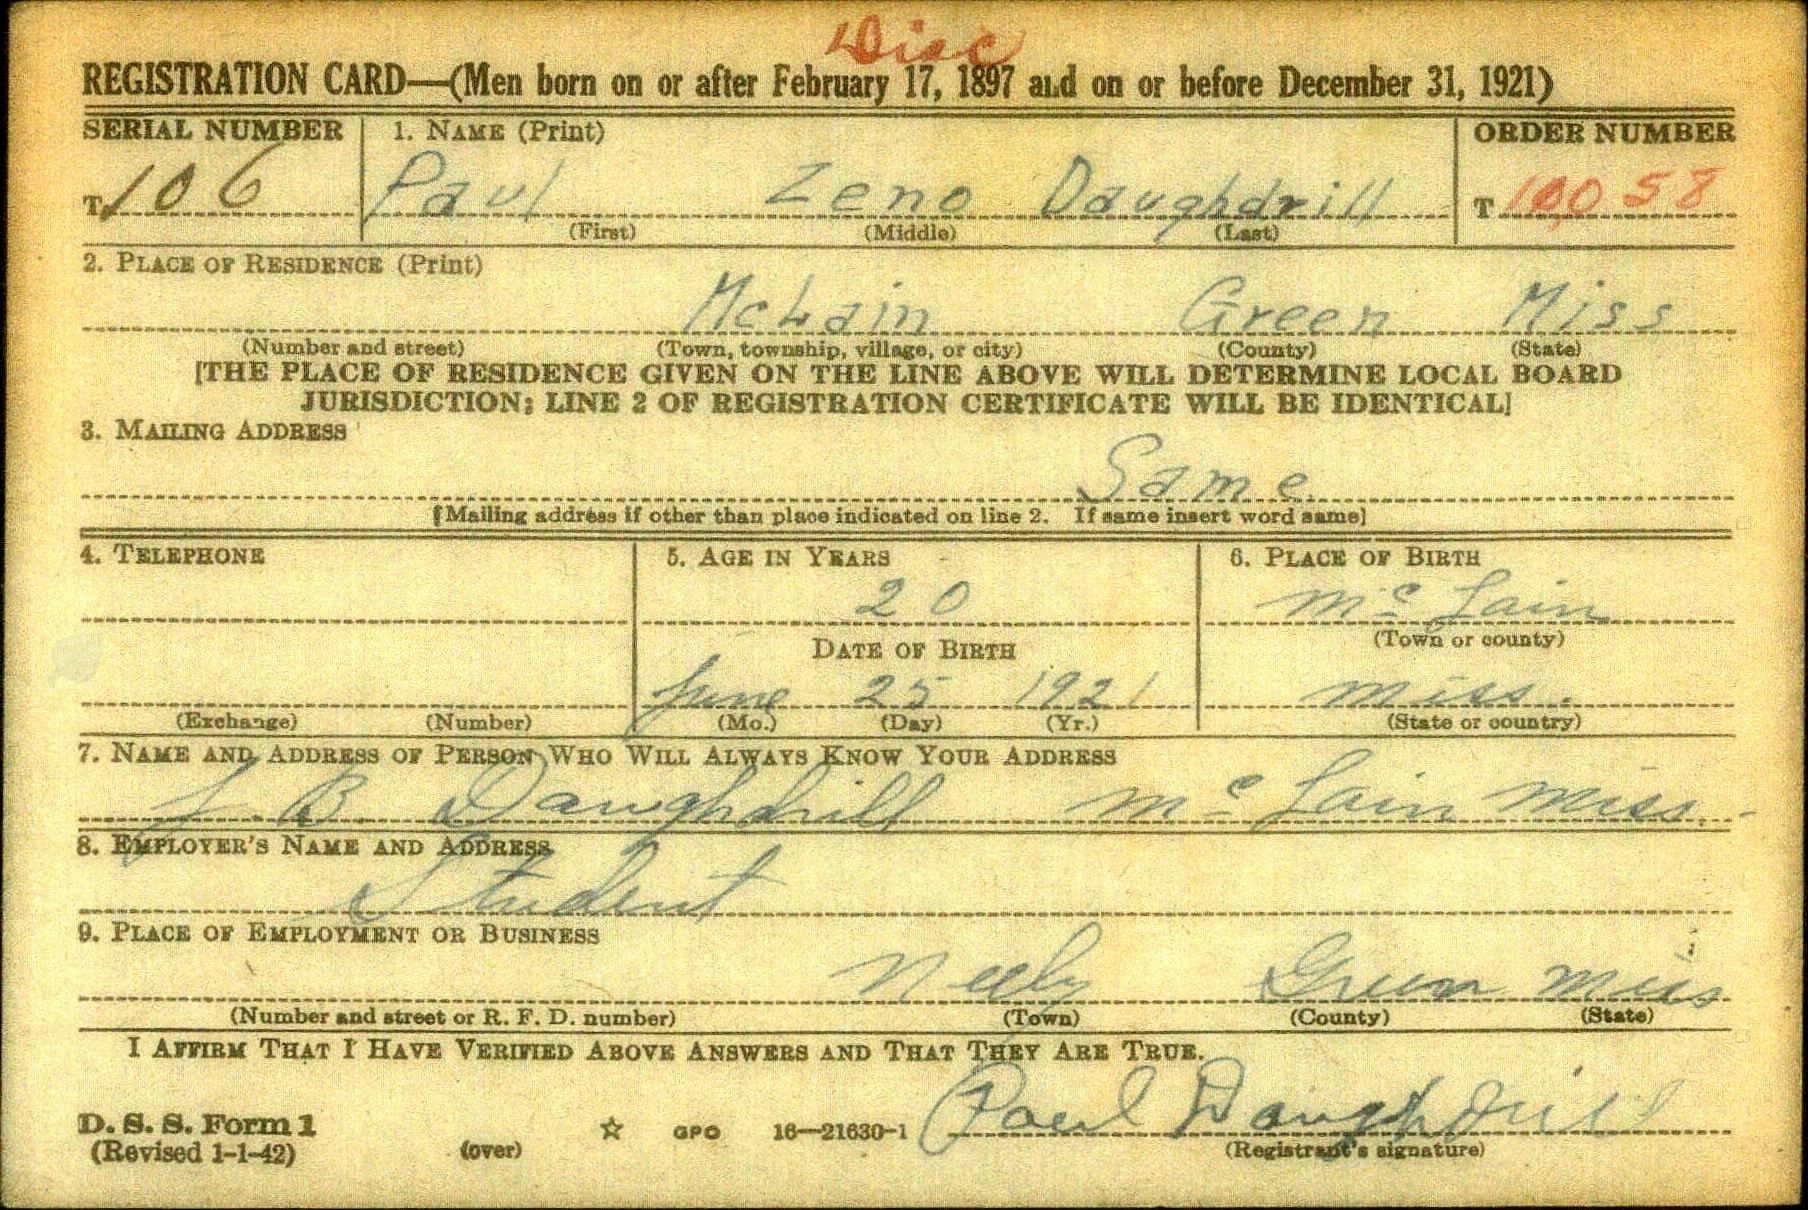 Disc
REGISTRATION CARD—(Men born on or after February 17, 1897 and on or before December 31, 1921)
SERIAL NUMBER 1. NAME (Print) ORDER NUMBER
T 106 Paul Zeno Daughdrill T 10058
(First) (Middle) (Last)
2. PLACE OF RESIDENCE (Print)
McLain Green Miss
(Number and street) (Town, township, village, or city) (County) (State)
[THE PLACE OF RESIDENCE GIVEN ON THE LINE ABOVE WILL DETERMINE LOCAL BOARD
JURISDICTION; LINE 2 OF REGISTRATION CERTIFICATE WILL BE IDENTICAL]
3. MAILING ADDRESS
Same
[Mailing address if other than place indicated on line 2. If same insert word same]
4. TELEPHONE 5. AGE IN YEARS 6. PLACE OF BIRTH
20 Mc Lain
DATE OF BIRTH (Town or county)
June 25 1921 Miss.
(Exchange) (Number) (Mo.) (Day) (Yr.) (State or country)
7. NAME AND ADDRESS OF PERSON WHO WILL ALWAYS KNOW YOUR ADDRESS
B. Daughdrill Mc Lain Miss.
8. EMPLOYER'S NAME AND ADDRESS
Student
9. PLACE OF EMPLOYMENT OR BUSINESS
Neely Green Miss
(Number and street or R. F. D. number) (Town) (County) (State)
I AFFIRM THAT I HAVE VERIFIED ABOVE ANSWERS AND THAT THEY ARE TRUE.
Paul Daughdrill
D. S. S. Form 1
(Revised 1-1-42) (over) ☆ GPO 16—21630-1 (Registrant's signature)